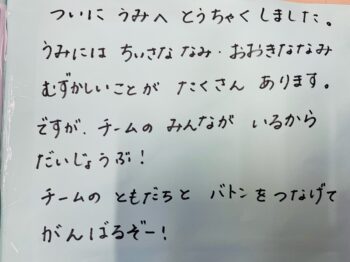 ついに うみへ とうちゃくしました。
うみには ちいさな なみ・おおきななみ
むずかしいことが たくさん あります。
ですが、チームの みんなが いるから
だいじょうぶ！
チームの ともだちと バトンを つなげて
がんばるぞー！